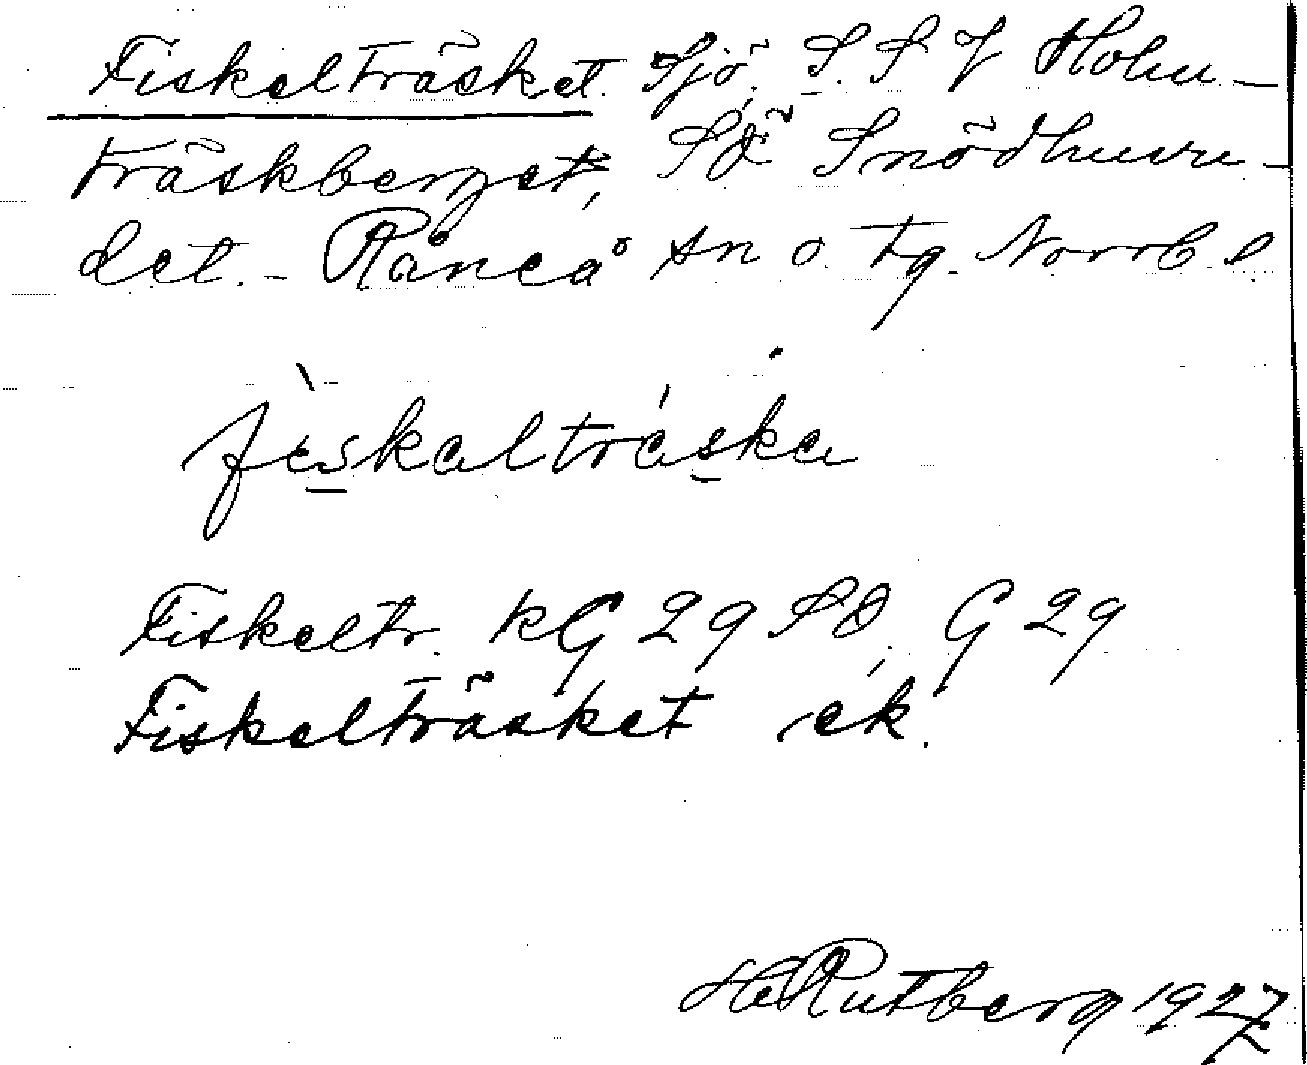 Fiskelträsket. Sjö, S. S V Holm-
träskberget, SÖ Snödhuvu-
det. - Råneå sn o. tg. Norrb. l.
fı̀skaltráska
Fiskeltr. kG 29 SÖ, G 29
Fiskelträsket ek.
He Rutberg 1927